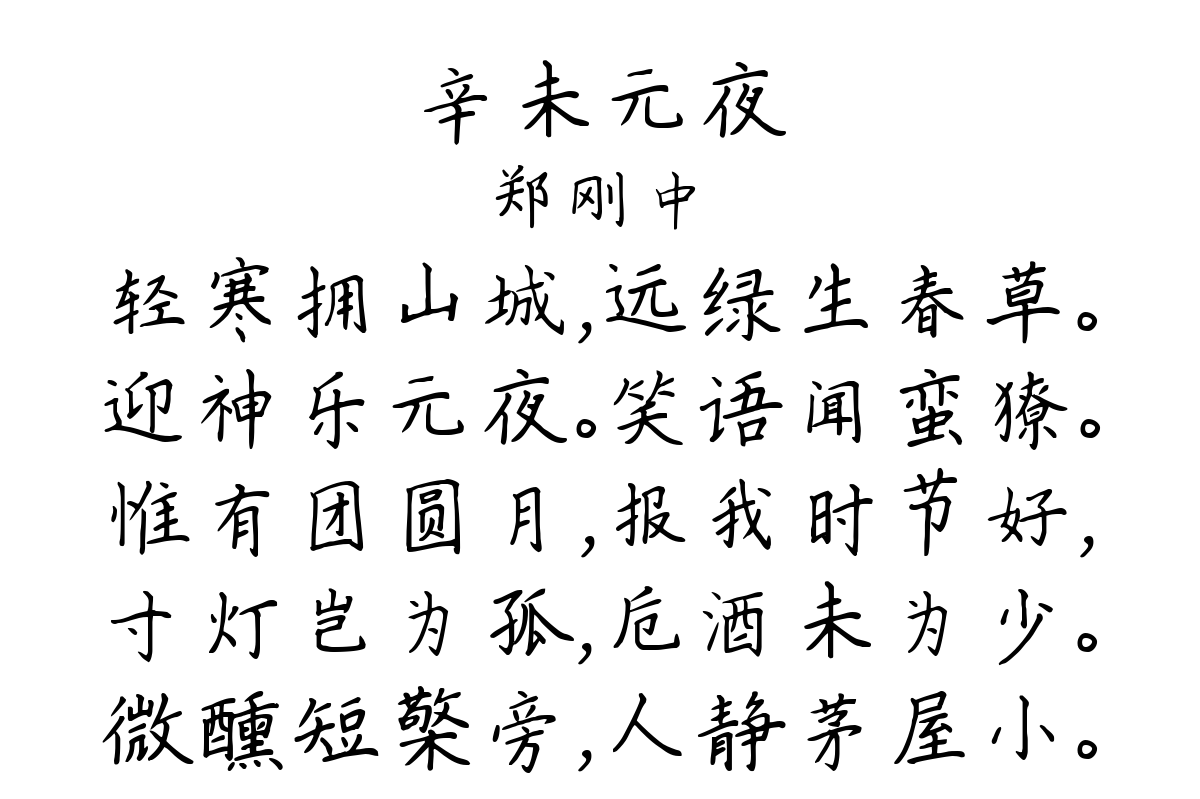 辛未元夜
郑刚中
轻寒拥山城,远绿生春草。
迎神乐元夜。笑语闻蛮獠。
惟有团圆月,报我时节好,
寸灯岂为孤,卮酒未为少。
微醺短檠旁,人静茅屋小。